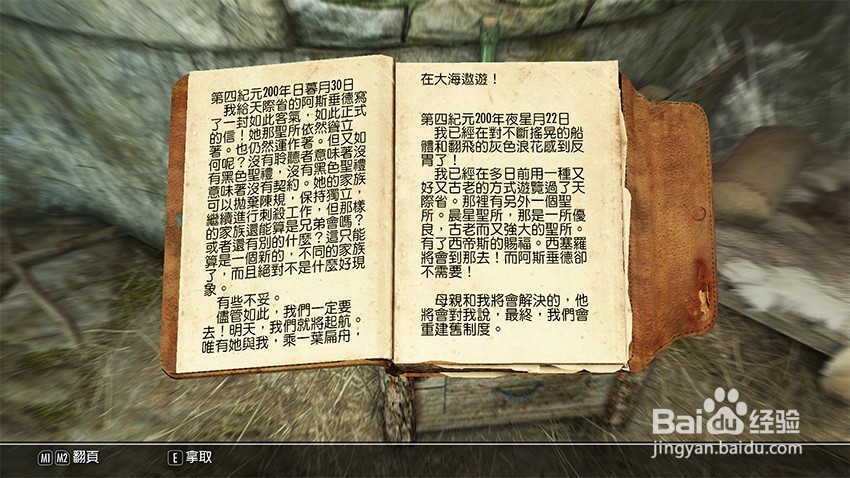 第四紀元200年日暮月30日
我給天際省的阿斯垂德寫
了一封如此客氣，如此正式
的信！她那聖所依然聳立
著。也仍然運作著。但又如
何呢？沒有聆聽者意味著沒
有黑色聖禮，沒有黑色聖禮
意味著沒有契約。她的家族
可以拋棄陳規，保持獨立，
繼續進行刺殺工作，但那樣
的家族還能算是兄弟會嗎？
或者還有別的什麼？這只能
算是一個新的，不同的家族
了，而且絕對不是什麼好現
象。
有些不妥。
儘管如此，我們一定要
去！明天，我們就將起航。
唯有她與我，乘一葉扁舟，
在大海遨遊！
第四紀元200年夜星月22日
我已經在對不斷搖晃的船
體和翻飛的灰色浪花感到反
胃了！
我已經在多日前用一種又
好又古老的方式遊覽過了天
際省。那裡有另外一個聖
所。晨星聖所，那是一所優
良，古老而又強大的聖所。
有了西帝斯的賜福。西塞羅
將會到那去！而阿斯垂德卻
不需要！
母親和我將會解決的，他
將會對我說，最終，我們會
重建舊制度。
M1 M2 翻頁
E 拿取
Bai 经验
jingyan.baidu.com